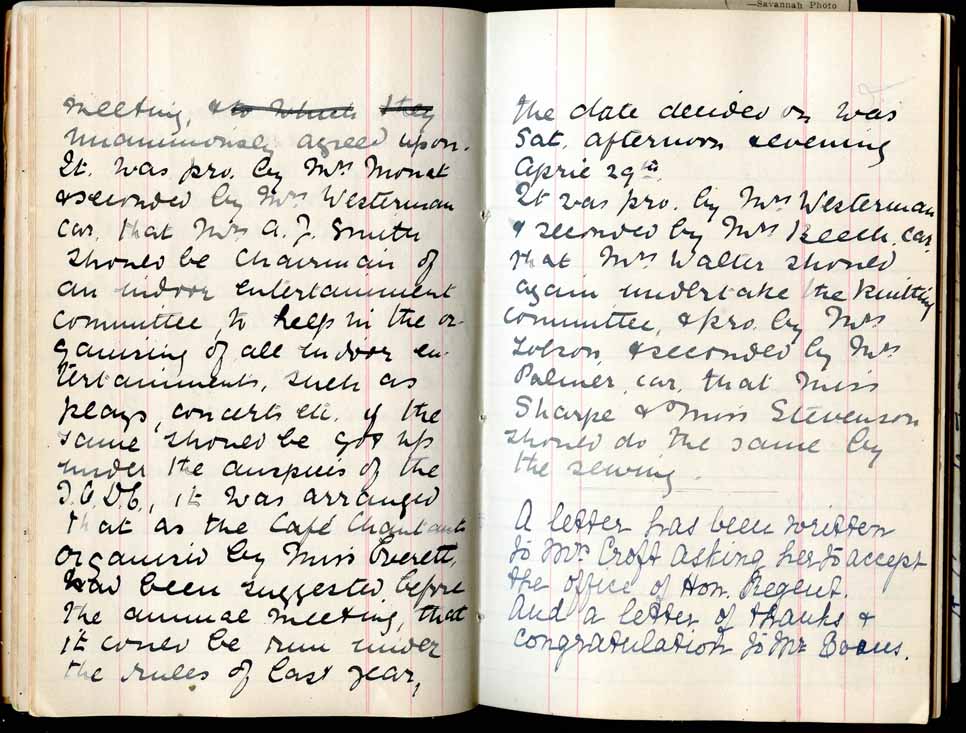 meeting, & to which they
unanimously agreed upon.
It. was pro. by Mrs Monat
& seconded by Mrs Westerman
car. that Mrs A. J. Smith
should be Chairman of
an indoor entertainment
committee, to help in the or-
ganising of all indoor en-
tertainments, such as
plays, concerts etc. if the
same should be got up
under the auspices of the
I.O.D.E, it was arranged
that as the Café Chantant
organised by Miss Everett,
had been suggested before
the annual meeting, that
it could be run under
the rules of last year,
—Savannah Photo
the date decided on was
Sat. afternoon & evening
April 29th.
It was pro. by Mrs Westerman
& seconded by Mrs Beech, car.
that Mrs Walter should
again undertake the knitting
committee, & pro. by Mrs
& seconded by Mrs
Palmer, car, that Miss
Sharpe & Miss Stevenson
should do the same by
the sewing.
A letter has been written
to Mrs Croft asking her to accept
the office of Hon. Regent.
And a letter of thanks &
congratulation to Mr